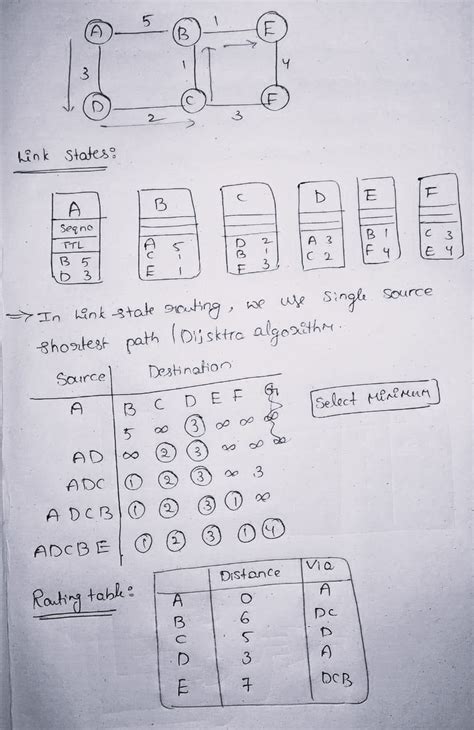 A 5 B 1 E
3 1 4
D 2 C 3 F
Link States:
A B C D E F
Seqno
TTL
B 5 A 5 D 2 A 3 B 1 C 3
D 3 C 1 B 1 C 2 F 4 E 4
E 1 F 3
⇒ In Link-state routing, we use single source
shortest path /Dijsktra algorithm.
Source Destination
A B C D E F
5 ∞ 3 ∞ ∞ ∞
Select MINIMUM
AD ∞ 2 3 ∞ ∞ ∞
ADC 1 2 3 ∞ 3
ADCB 1 2 3 1 ∞
ADCBE 1 2 3 1 4
Routing table:
Distance Via
A 0 A
B 6 DC
C 5 D
D 3 A
E 7 DCB